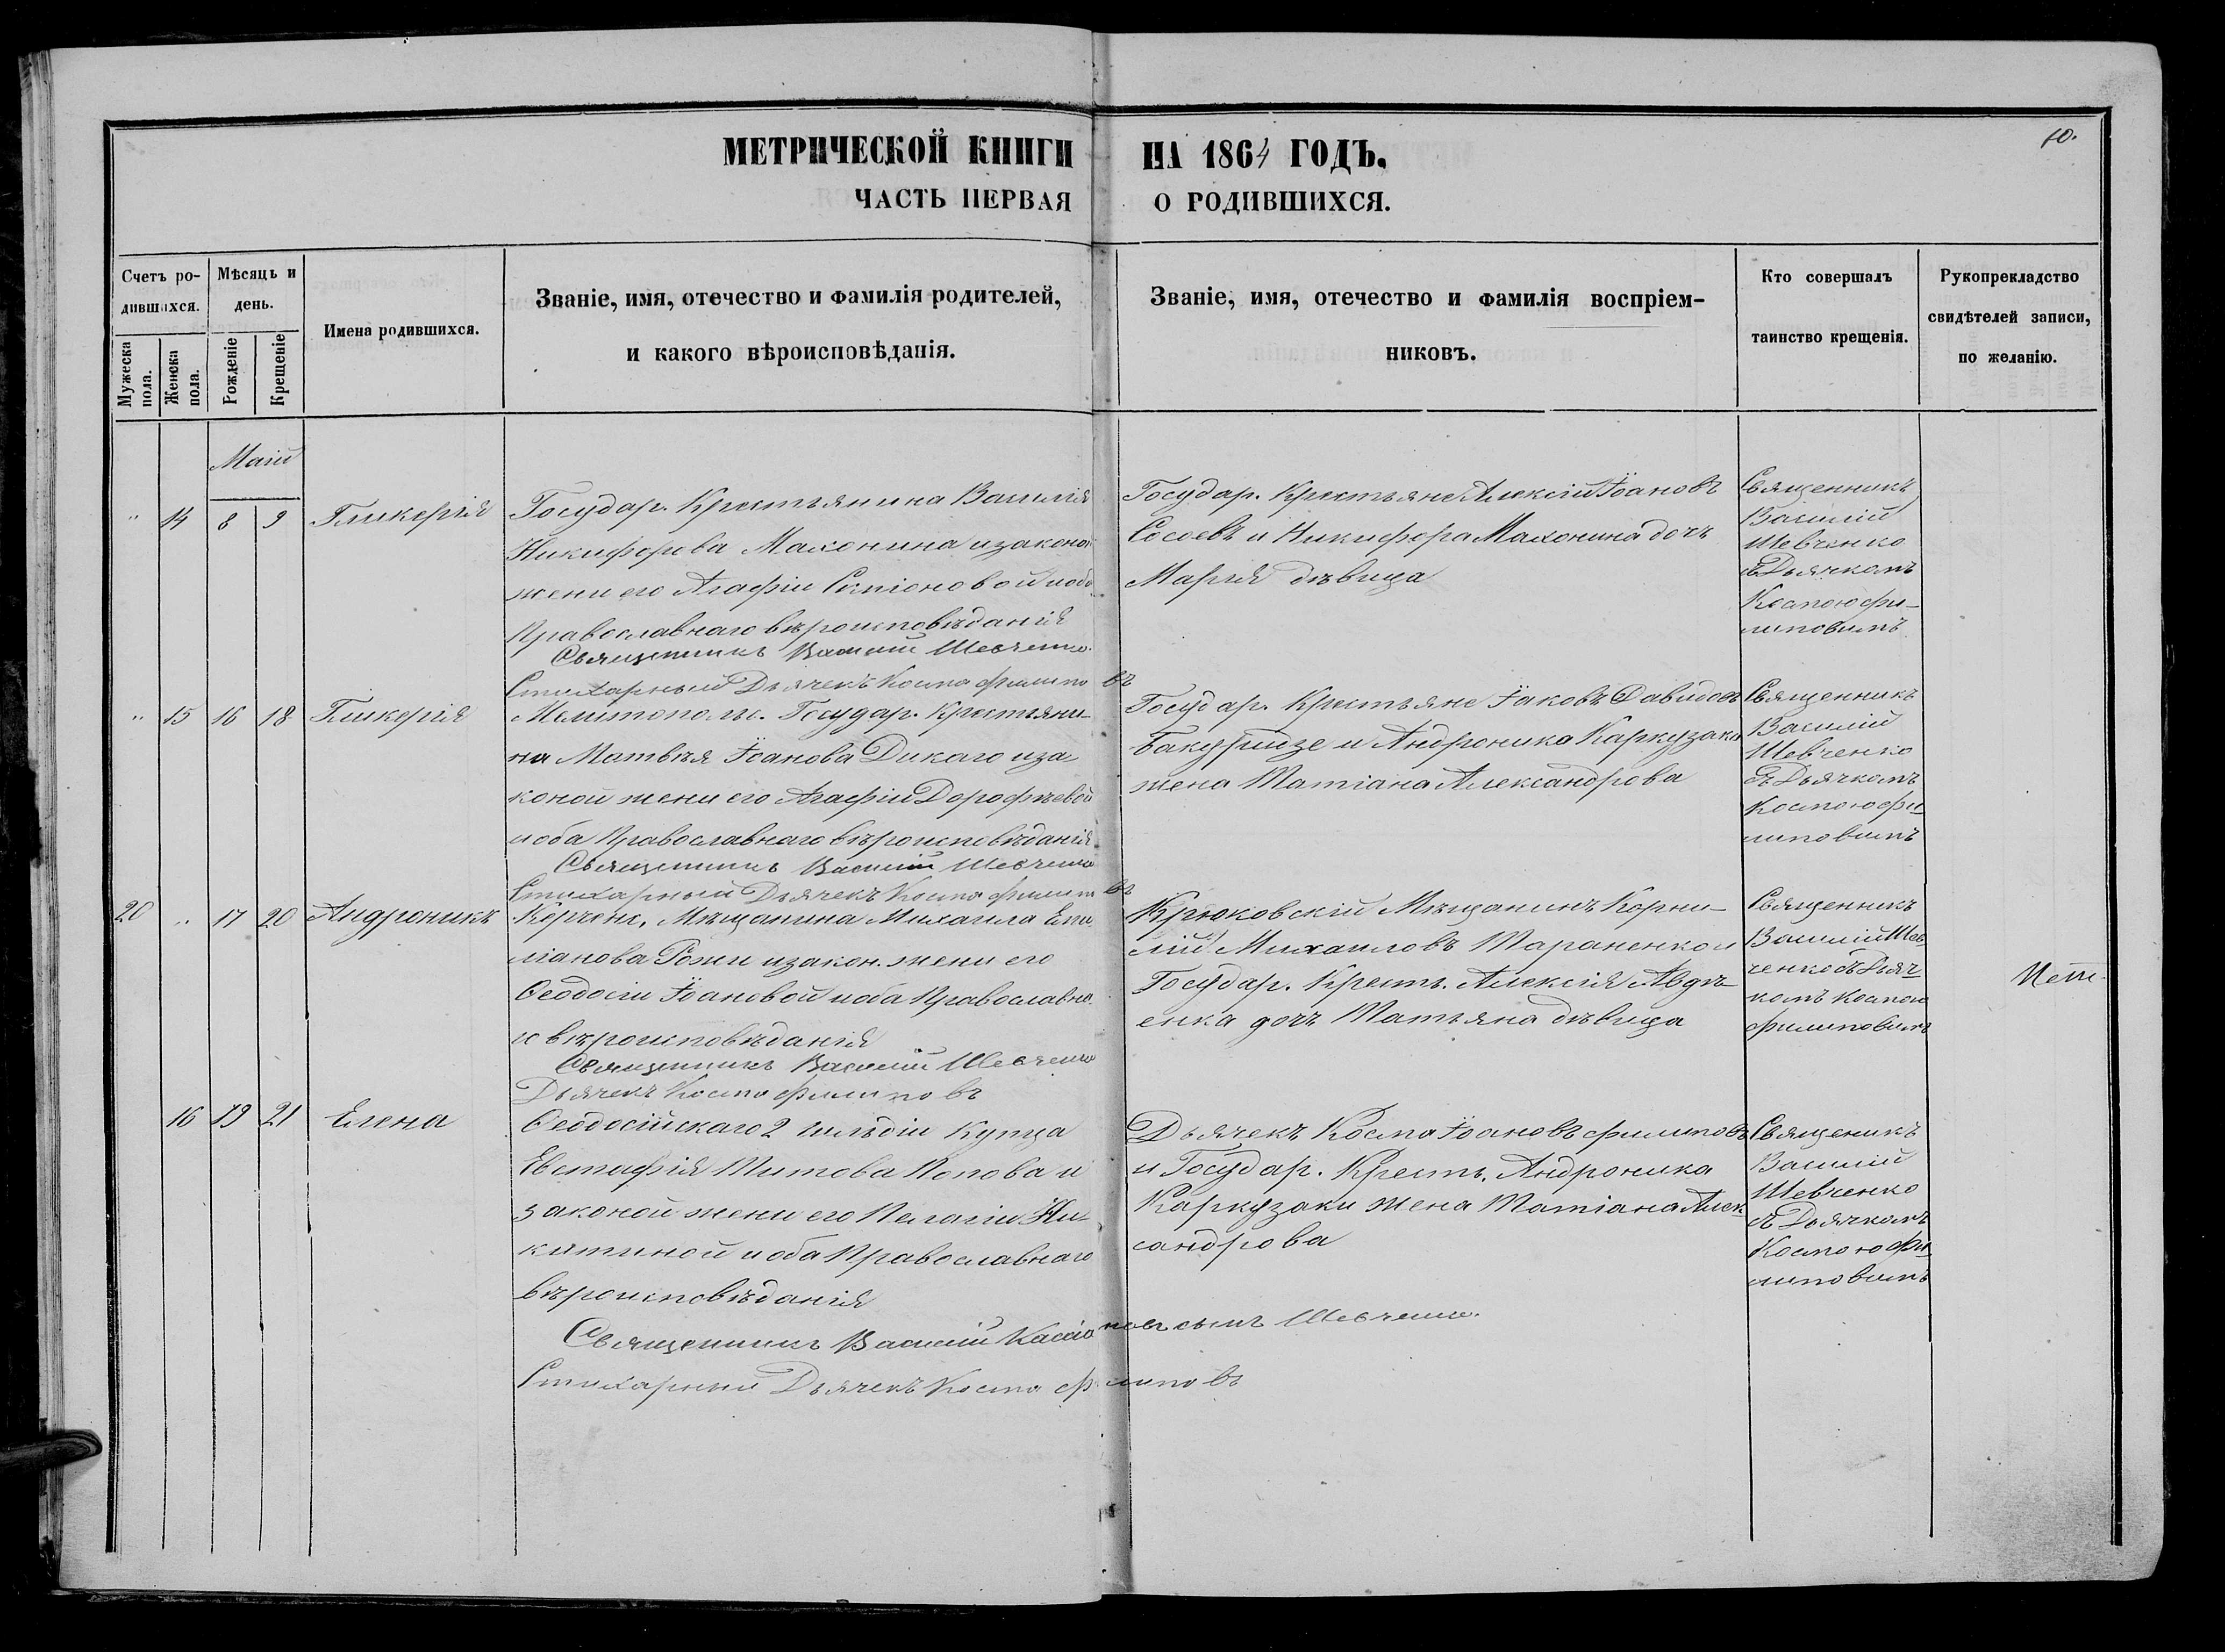 МЕТРИЧЕСКОЙ КНИГИ НА 1864 ГОДЪ.
10.
ЧАСТЬ ПЕРВАЯ О РОДИВШИХСЯ.
Счетъ родившихся.
Мужеска пола.
Женска пола.
Мѣсяцъ и день.
Рожденіе
Крещеніе
Имена родившихся.
Званіе, имя, отечество и фамилія родителей,
и какого вѣроисповѣданія.
Званіе, имя, отечество и фамилія воспріем-
никовъ.
Кто совершалъ
таинство крещенія.
Рукоприкладство
свидѣтелей записи,
по желанію.
Маій
" 14 8 9 Гликерія
Государ. Крестьянина Василія
Никифорова Махонина и законой
жени его Агафіи Симіоновой иоба
Православнаго вѣроисповѣданія
Священникъ Василій Шевченко.
Стихарный Дьячекъ Косма Филиповъ
Государ. Крестьяне Алексій Іоановъ
Сосоевъ и Никифора Махонина дочь
Марія дѣвица
Священникъ
Василій
Шевченко
съ Дьячкомъ
Космою Фи-
липовымъ
" 15 16 18 Гликерія
Мелитополь. Государ. Крестьяни-
на Матвѣя Іоанова Дикаго иза-
коной жени его Агафіи Дорофѣевой
иоба Православнаго вѣроисповѣданія
Священникъ Василій Шевченко
Стихарный Дьячекъ Косма Филиповъ
Государ. Крестьяне Іаковъ Давидовъ
Бакуридзе и Андроника Каркузаки
жена Татіана Александрова
Священникъ
Василій
Шевченко
съ Дьячкомъ
Космою Фи-
липовымъ
20 " 17 20 Андроникъ
Керченс. Мѣщанина Михаила Еми-
ліанова Рожи изакон. жени его
Ѳеодосіи Іоановой иоба Православна-
го вѣроисповѣданія
Священникъ Василій Шевченко
Дьячекъ Косма Филиповъ
Крюковскій Мѣщанинъ Корни-
лій Михаиловъ Тараненко и
Государ. Кресть. Алексія Авдѣ-
енка дочь Татьяна дѣвица
Священникъ
Василій Шев
ченко съ Дьяч-
комъ Космою
Филиповымъ
16 19 21 Елена
Ѳеодосійскаго 2 гильдіи Купца
Евстафія Титова Попова и
законой жени его Пелагіи Ни-
китиной иоба Православнаго
вѣроисповѣданія
Священникъ Василій Кассіановъ сынъ Шевченко.
Стихарный Дьячекъ Косма Филиповъ
Дьячекъ Косма Іоановъ Филиповъ
и Государ. Кресть. Андроника
Каркузаки жена Татіана Алек-
сандрова
Священикъ
Василій
Шевченко
съ Дьячкомъ
Космою Фи-
липовымъ